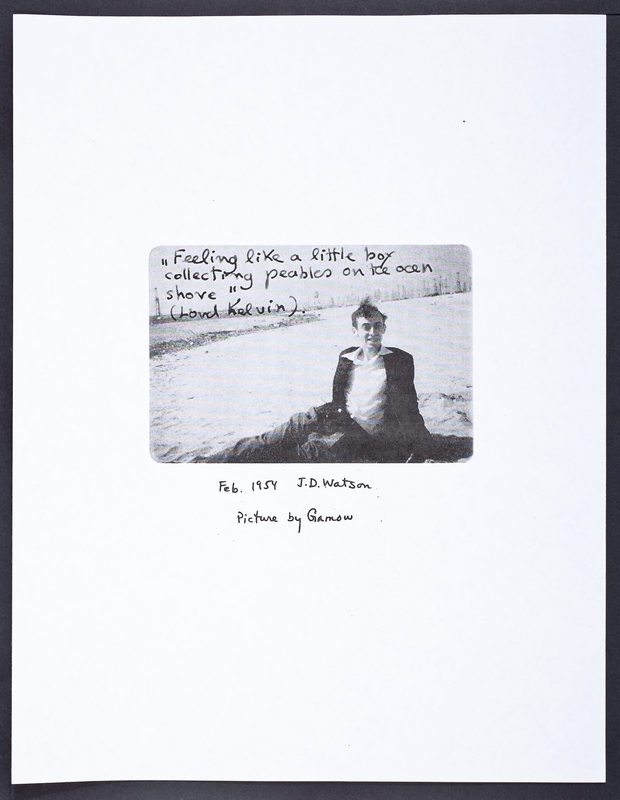 „Feeling like a little boy
collecting peables on the ocen
shove"
(Lord Kelvin).
Feb. 1954 J.D. Watson
Picture by Gamow